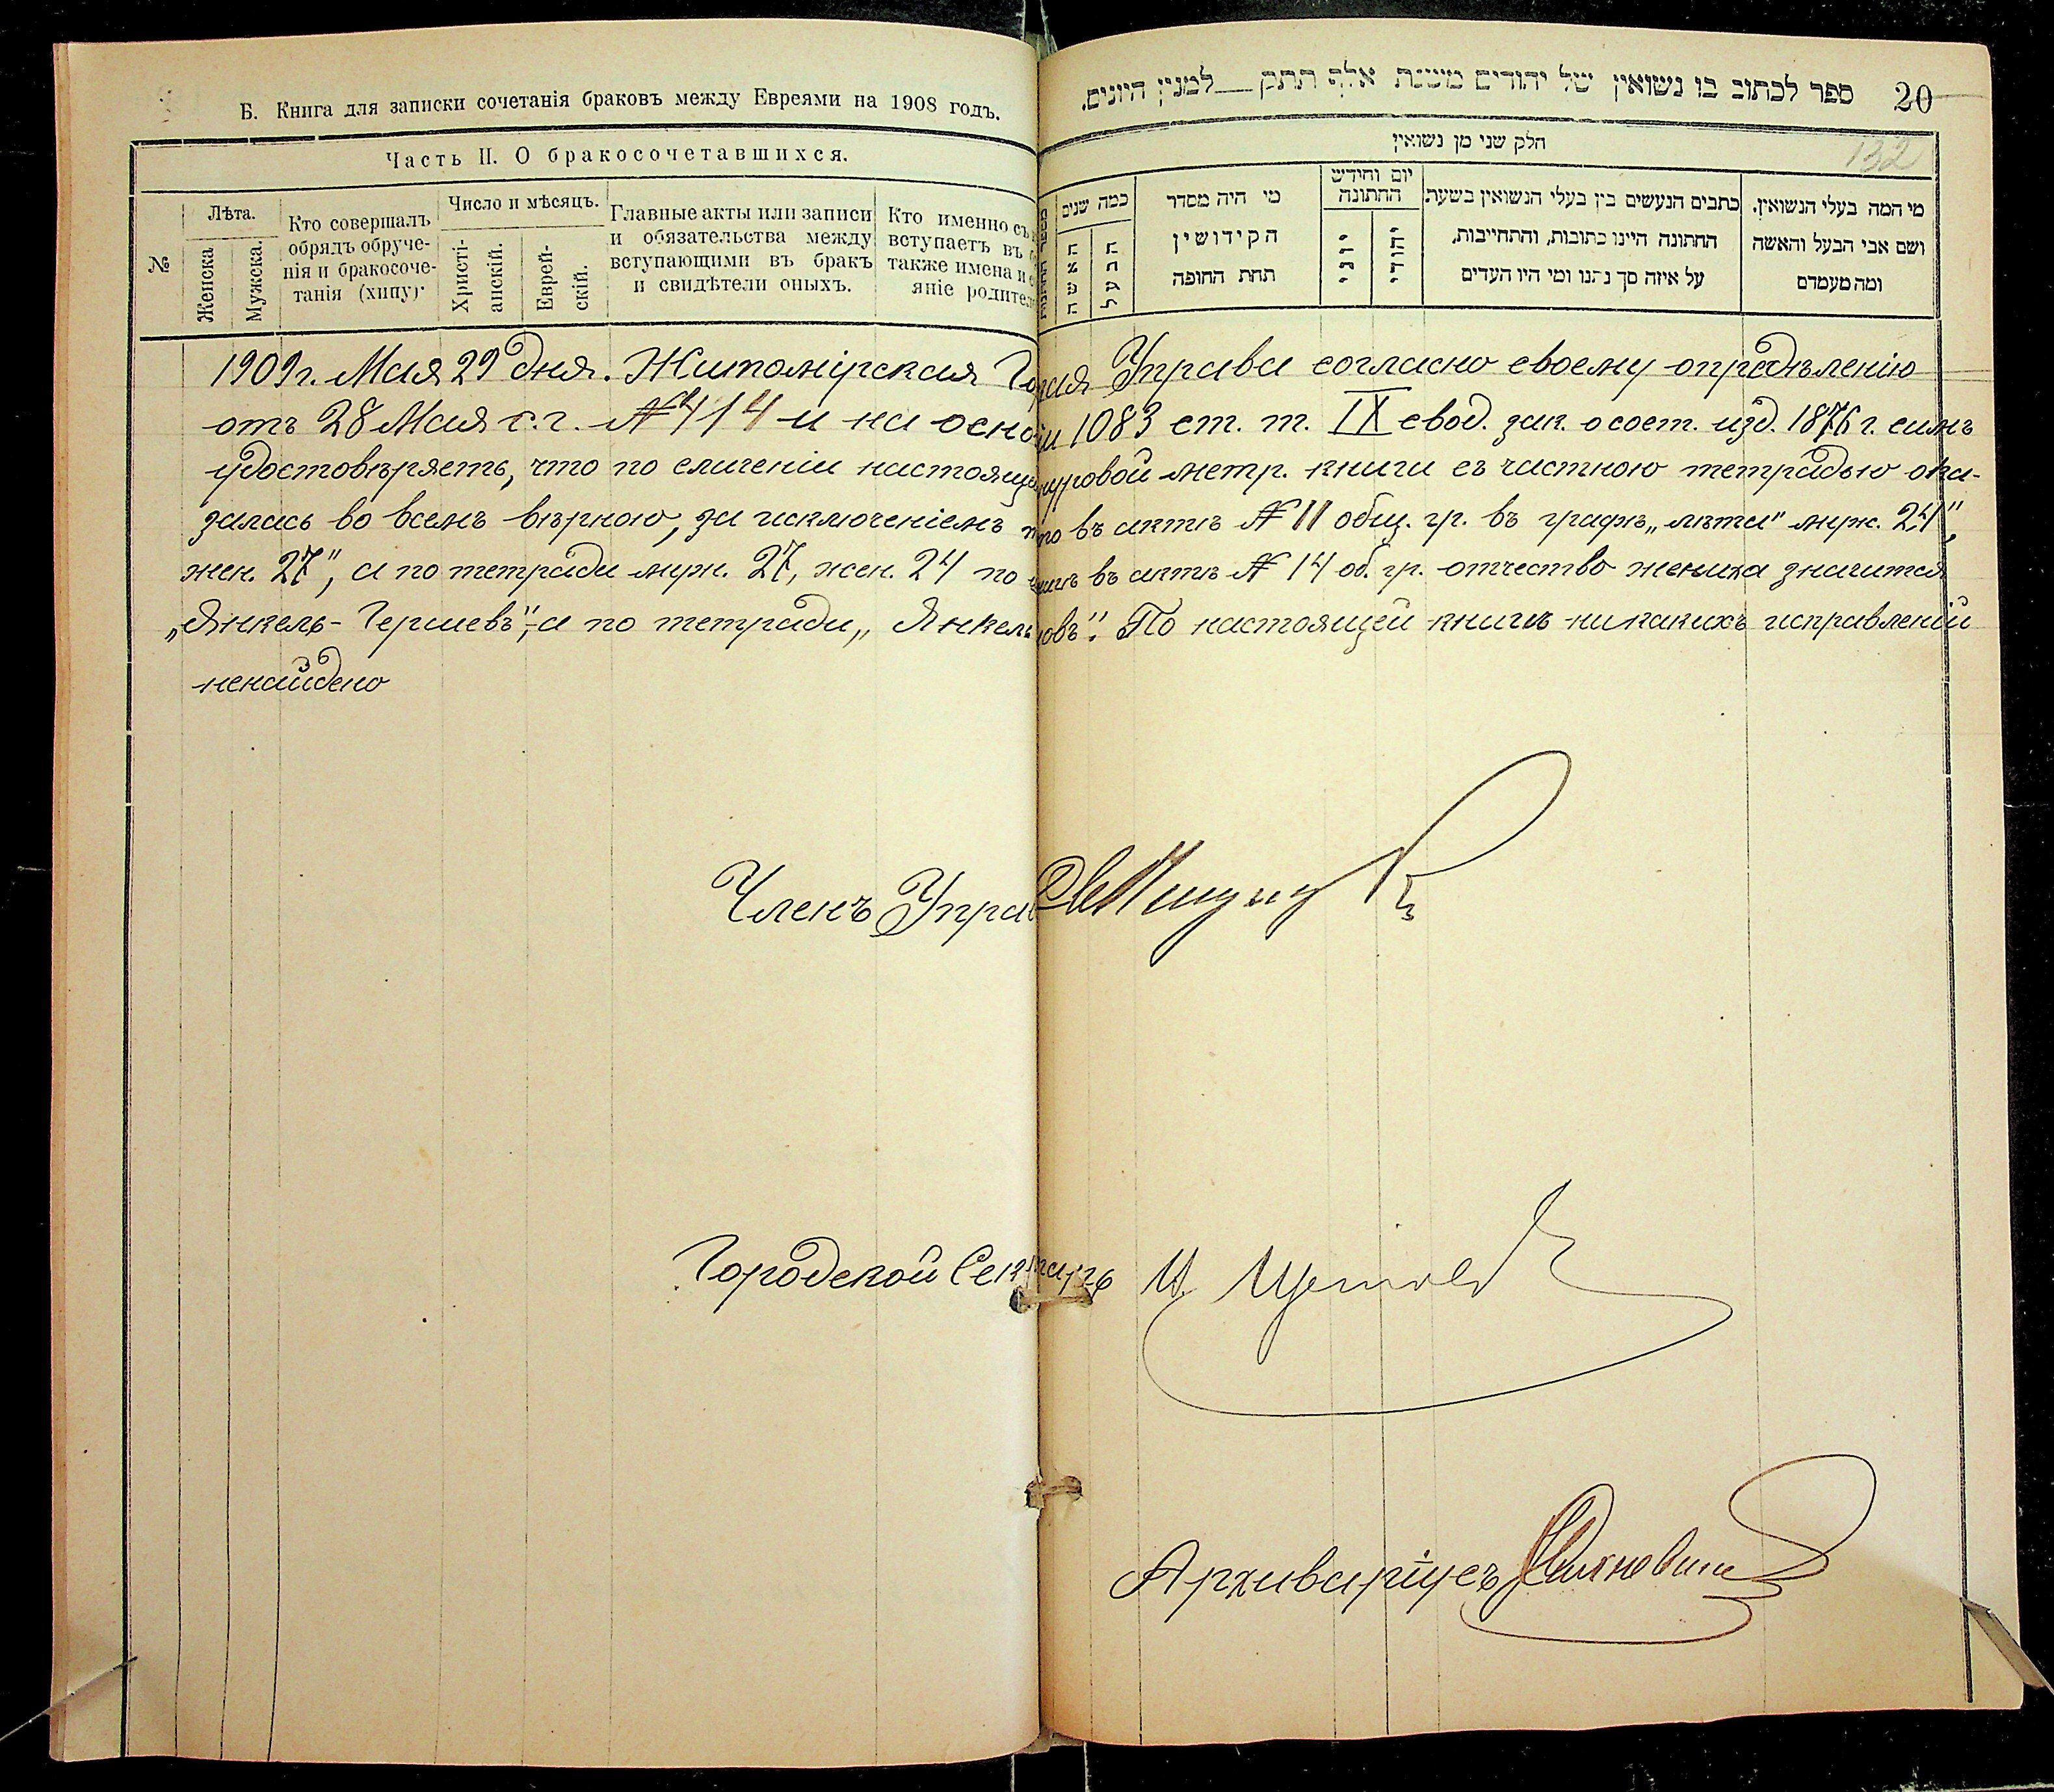 Б. Книга для записки сочетанія браковъ между Евреями на 1908 годъ.
ספר לכתוב בו נשואין של יהודים משנת אלף תתק למנין היונים.
20
132
Часть II. О бракосочетавшихся.
חלק שני מן נשואין
№
Лѣта.
Женска
Мужска.
Кто совершалъ
обрядъ обруче-
нія и бракосоче-
танія (хипу)
Число и мѣсяцъ.
Христі-
анскій.
Еврей-
скій.
Главные акты или записи
и обязательства между
вступающими въ бракъ
и свидѣтели оныхъ.
Кто именно съ
вступаетъ въ
также имена и
яніе родител
כמה שנים
האשה
הבעל
מי היה מסדר
הקידושין
תחת החופה
יום וחודש
החתונה
יוני
יהודי
כתבים הנעשים בין בעלי הנשואין בשעת
החתונה היינו כתובות, והתחייבות,
על איזה סך נתנו ומי היו העדים
מי המה בעלי הנשואין,
ושם אבי הבעל והאשה
ומה מעמדם
1909 г. Мая 29 дня. Житомірская Го ая Управа согласно своему опредѣленію
отъ 28 Мая с. г. № 414 и на осно іи 1083 ст. т. IX свод. зак. о сост. изд. 1876 г. симъ
удостовѣряетъ, что по сличеніи настоящ нуровой метр. книги съ частною тетрадью ока-
залась во всемъ вѣрною, за исключеніемъ что въ актѣ № 11 общ. гр. въ графѣ „лѣта" муж. 24",
жен. 27", а по тетради муж. 27, жен. 24 по въ актѣ № 14 об. гр. отчество жениха значится
„Янкель-Гершевъ", а по тетради „Янкель овъ". По настоящей книгѣ никакихъ исправленій
ненайдено
Членъ Управ
Городской Секретарь
Архиваріусъ